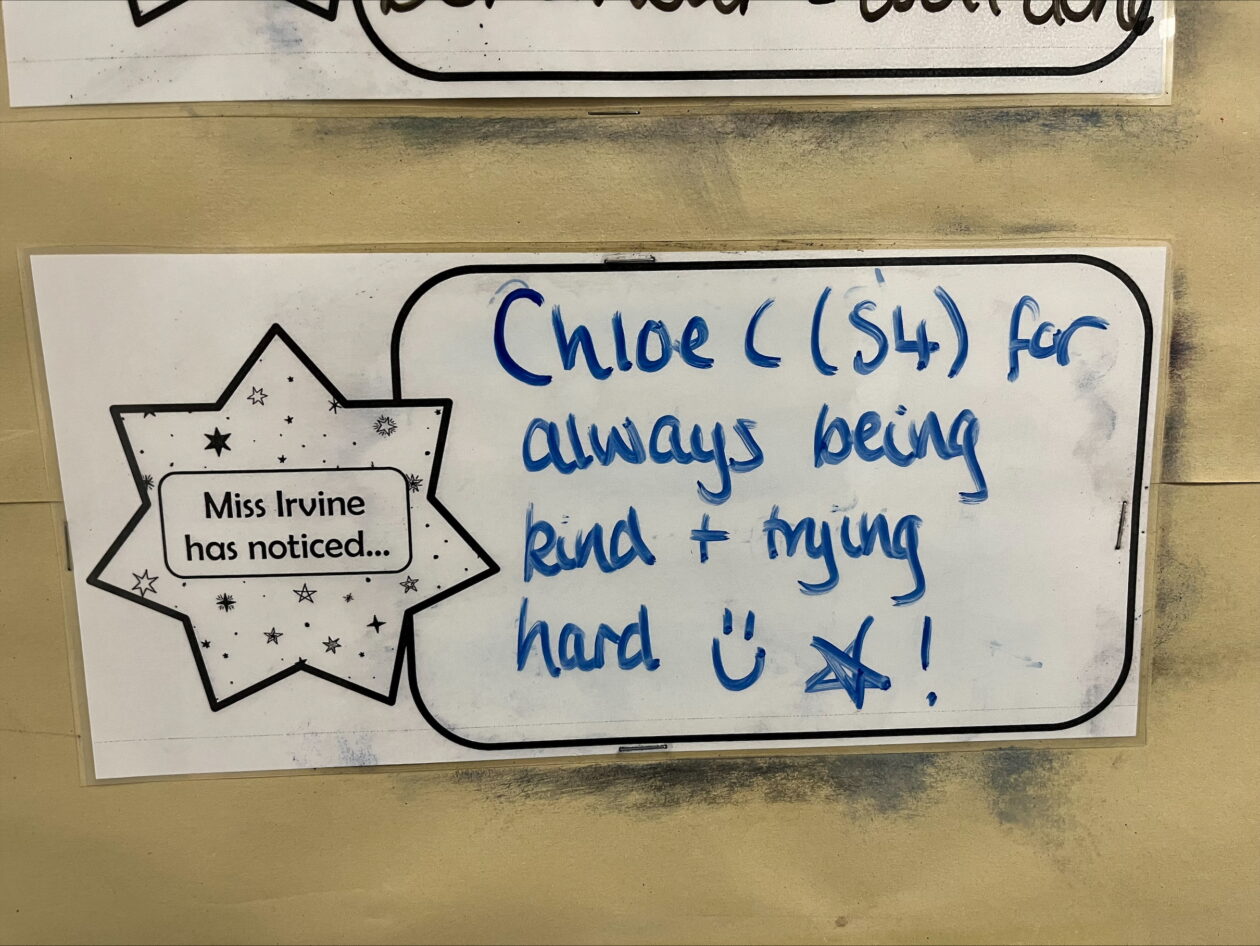 behaviour - well done
Miss Irvine
has noticed...
Chloe C (S4) for
always being
kind + trying
hard !